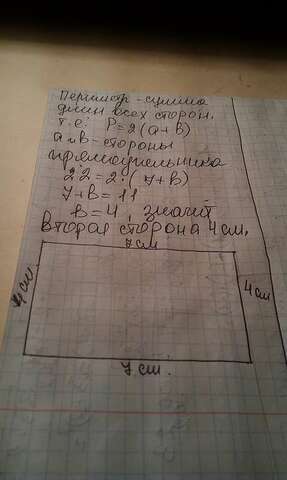 Периметр - сумма
длин всех сторон,
т.е. P=2(a+b)
a и b - стороны
прямоугольника
22=2·(7+b)
7+b=11
b=4, значит
вторая сторона 4 см.
7 см
4 см
4 см
7 см.